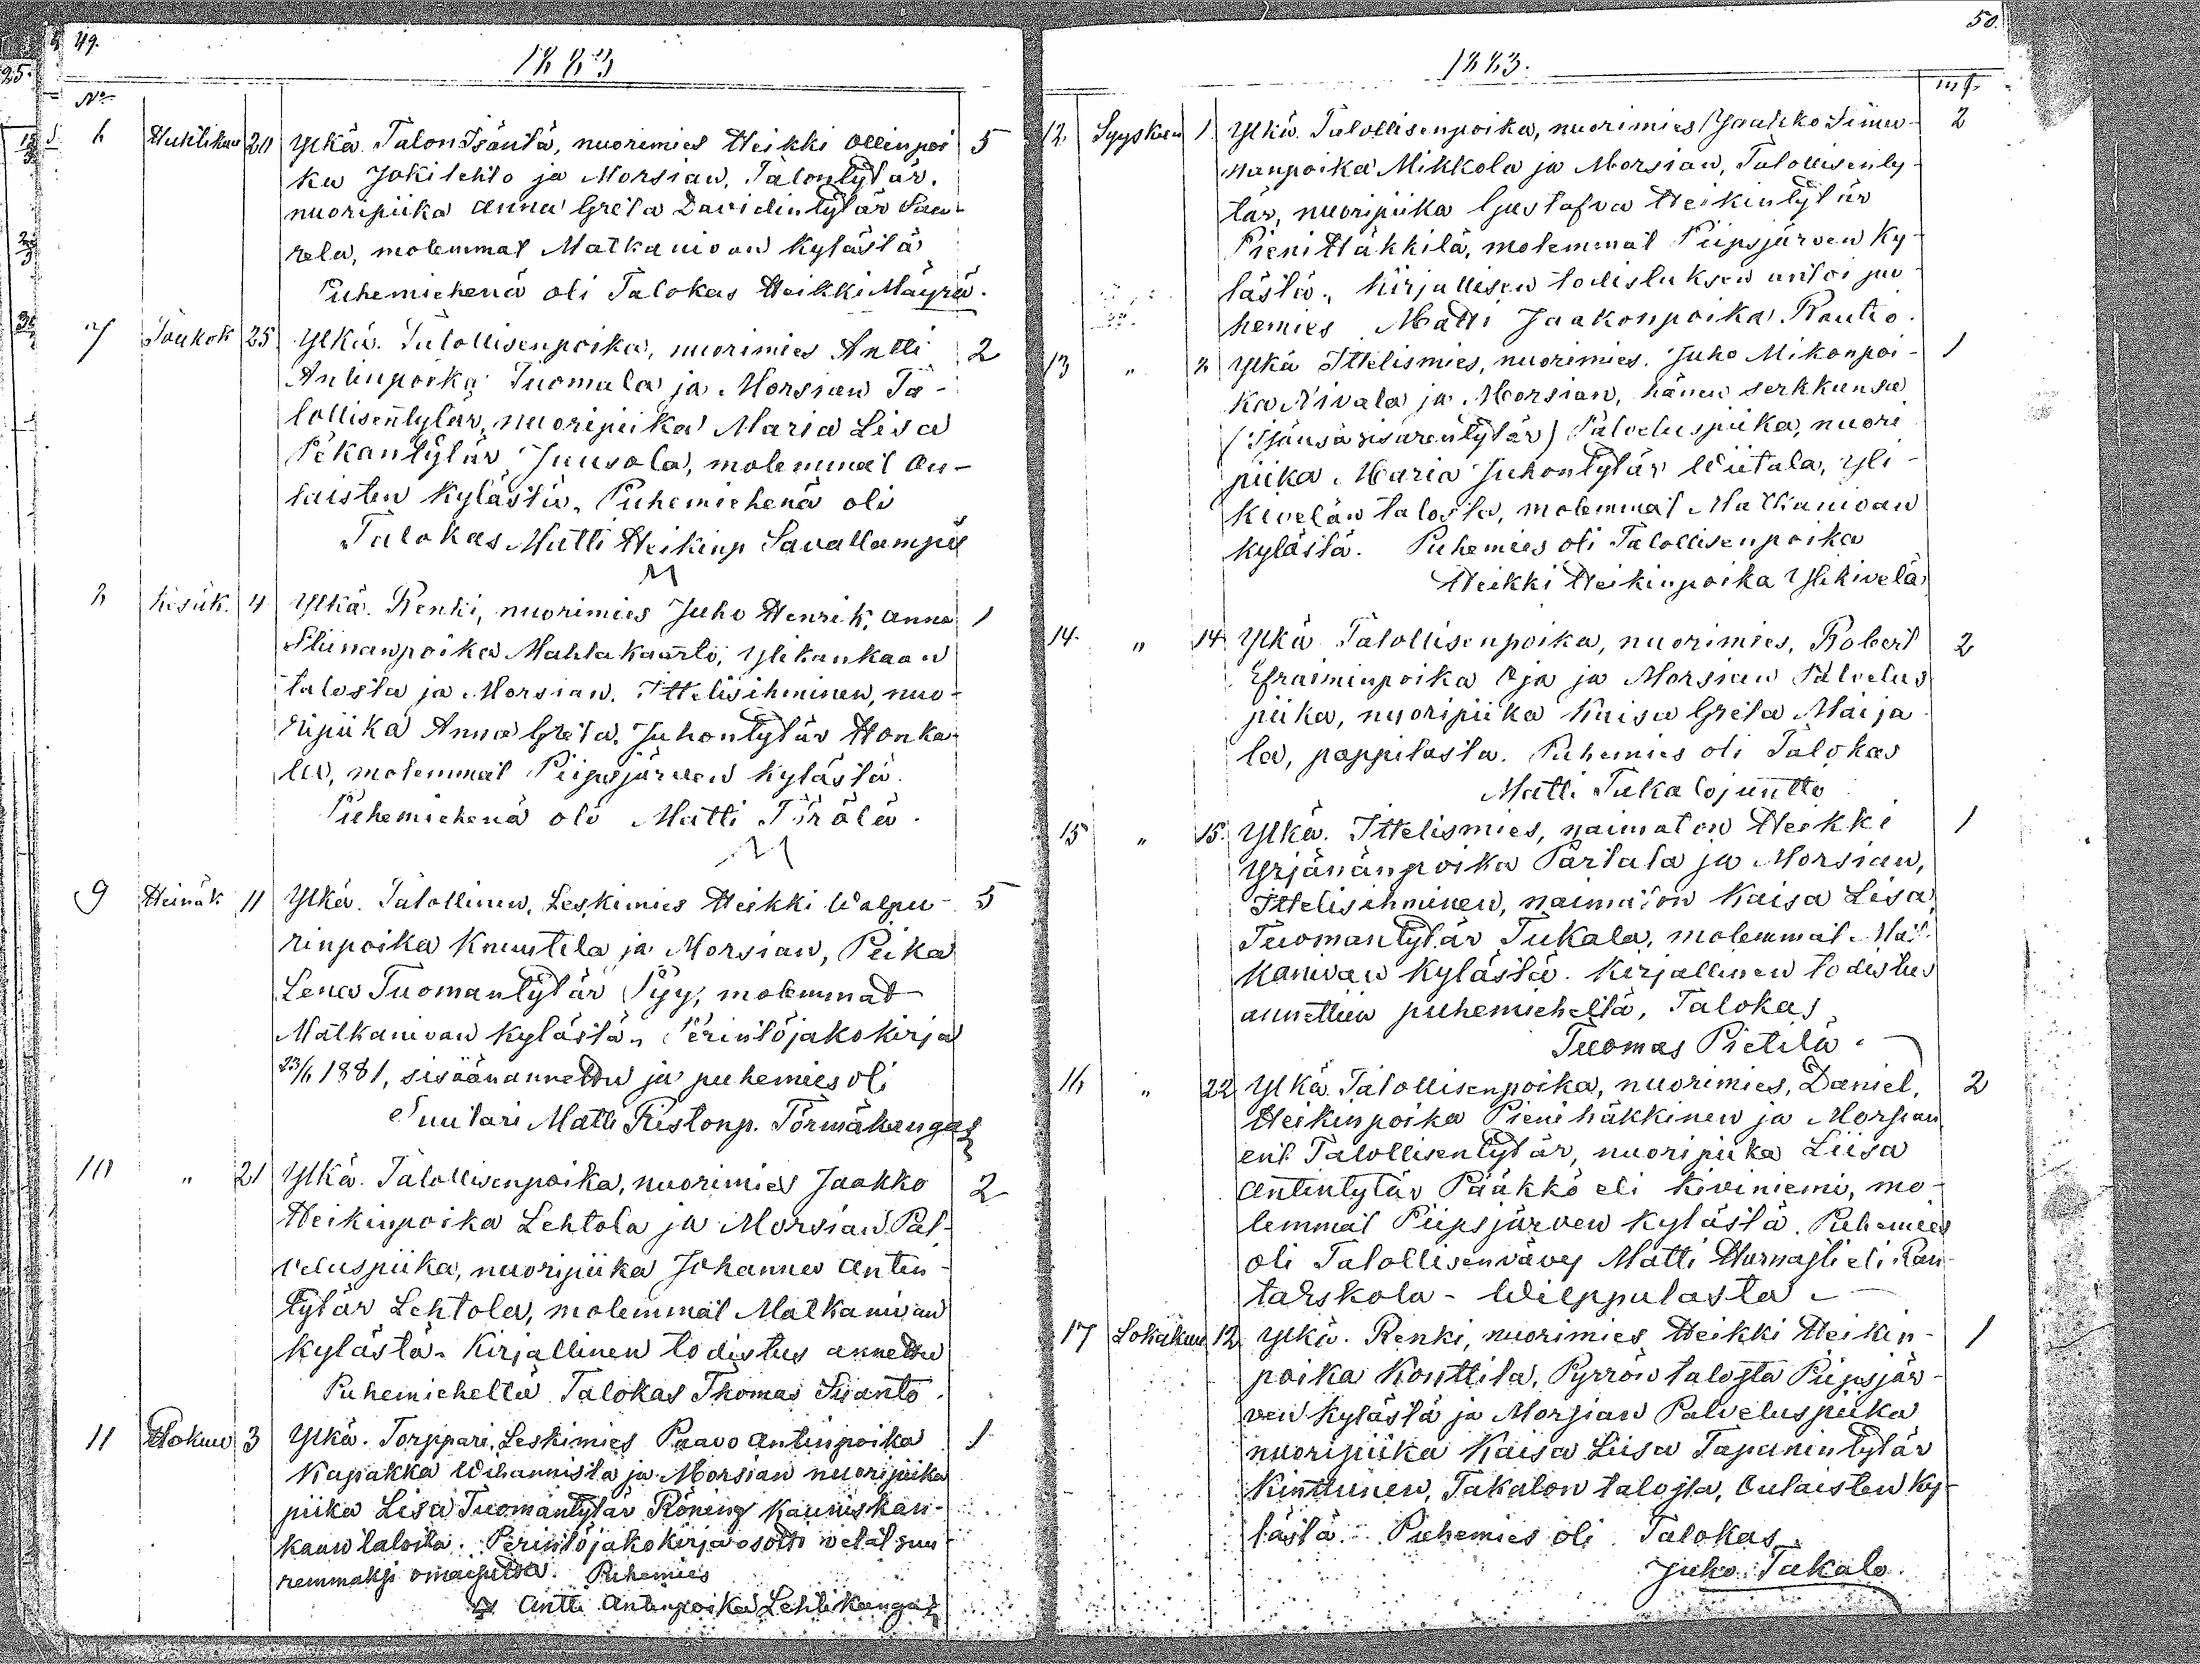 49.
1883
No
6 Huhtikuu 20 Ylkä. Talon Isäntä, nuorimies Heikki Ollinpoi 5
ka Jokilehto ja Morsian, Talontytär.
nuoripiika Anna Greta Davidintytär Saa-
rela, molemmat Matkanivan kylästä
Puhemiehenä oli Talokas Heikki Mäyrä.
7 Toukok 25 Ylkä. Talollisenpoika, nuorimies Antti 2
Antinpoika Tuomala ja Morsian Ta-
lollisentytär, nuoripiika Maria Lisa
Pekantytär Juusola, molemmat Ou-
laisten kylästä. Puhemiehenä oli
Talokas Matti Heikinp Savallampi
8 Kesäk. 4 Ylkä. Renki, nuorimies Juho Henrik, Anna 1
Stiinanpoika Mahlakaarto, Ylikankaan
talosta ja Morsian. Ittelisihminen, nuo-
ripiika Anna Greta. Juhontytär Honka-
la, molemmat Piipsjärven kylästä.
Puhemiehenä oli Matti Törölä.
9 Heinäk 11 Ylkä. Talollinen, Leskimies Heikki Walpu- 5
rinpoika Knuutila ja Morsian, Piika
Lena Tuomantytär Pyy, molemmat
Matkanivan kylästä. Perintöjakokirja
23/6 1881, sisäänannettu ja puhemies oli
Suutari Matti Ristonp. Törmäkangas
10 " 21 Ylkä. Talollisenpoika, nuorimies Jaakko 2
Heikinpoika Lehtola ja Morsian Pal-
veluspiika, nuoripiika Johanna Antin-
tytär Lehtola, molemmat Matkanivan
kylästä. Kirjallinen todistus annettu
Puhemieheltä Talokas Thomas Siianto.
11 Elokuu 3 Ylkä. Torppari, Leskimies Paavo Antinpoika 1
Kapakka Wihannista ja Morsian nuoripiika
piika Lisa Tuomantytär Röning Kauniskan-
kaan talosta. Perintöjakokirja osotti velat suu-
remmaksi omaisutta. Puhemies
Antti Antinpoika Lehtikangas
50.
1883.
12 Syyskuu 1 Ylkä. Talollisenpoika, nuorimies Jaakko Simu- 2
nanpoika Mikkola ja Morsian, Talollisenty-
tär, nuoripiika Gustafva Heikintytär
Pieni Häkkilä, molemmat Piipsjärven ky-
lästä. Kirjallisen todistuksen antoi pu-
hemies Matti Jaakonpoika Rautio.
13 " 8 Ylkä Ittelismies, nuorimies. Juho Mikonpoi- 1
ka Nivala ja Morsian, hänen serkkunsa
(Isänsä sisarentytär) Palveluspiika, nuori
piika Maria Juhontytär Wiitala, Yli-
kivelän talosta, molemmat Matkanivan
kylästä. Puhemies oli Talollisenpoika
Heikki Heikinpoika Ylikivelä
14. " 14 Ylkä Talollisenpoika, nuorimies, Robert 2
Efraiminpoika Oja ja Morsian Palvelus
piika, nuoripiika Kaisa Greta Maija
la, pappilasta. Puhemies oli Talokas
Matti Tukalojuntto
15 " 15. Ylkä. Ittelismies, naimaton Heikki 1
Yrjänänpoika Partala ja Morsian,
Ittelisihminen, naimaton Kaisa Lisa
Tuomantytär Tukala, molemmat Mat-
kanivan kylästä. Kirjallinen todistus
annettiin puhemieheltä, Talokas
Tuomas Pietilä.
16 " 22 Ylkä Talollisenpoika, nuorimies, Daniel, 2
Heikinpoika Pienihäkkinen ja Morsian
ent. Talollisentytär, nuoripiika Liisa
Antintytär Pääkkö eli Kiviniemi, mo-
lemmat Piipsjärven kylästä. Puhemies
oli Talollisenvävy Matti Hurnasti eli Ran-
tarskola-Wilppulasta
17 Lokakuu 12 Ylkä. Renki, nuorimies Heikki Heikin- 1
poika Konttila, Pyrrön talosta Piipsjär-
ven kylästä ja Morsian Palveluspiika
nuoripiika Kaisa Liisa Tapanintytär
Kinttunen, Takalon talosta, Oulaisten ky-
lästä. Puhemies oli Talokas
Juho Takalo